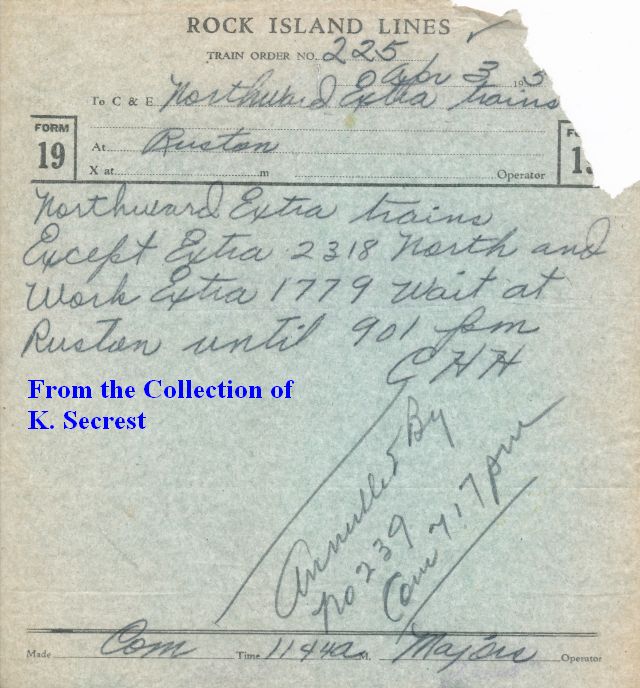 ROCK ISLAND LINES
TRAIN ORDER NO. 225
Apr 3 195
To C & E Northward Extra trains
FORM 19
At Ruston
X at m Operator
Northward Extra trains
Except Extra 2318 North and
Work Extra 1779 Wait at
Ruston until 901 pm
G H H
From the Collection of
K. Secrest
Annulled By
No 239
Com 717 pm
Made Com Time 1144a M. Majors Operator